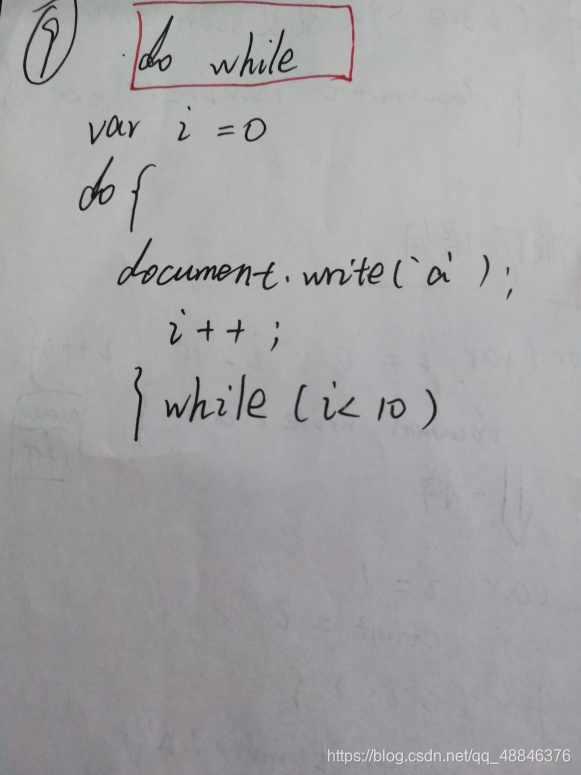 ⑨ do while
var i = 0
do {
document.write('a');
i++;
} while (i < 10)
https://blog.csdn.net/qq_48846376